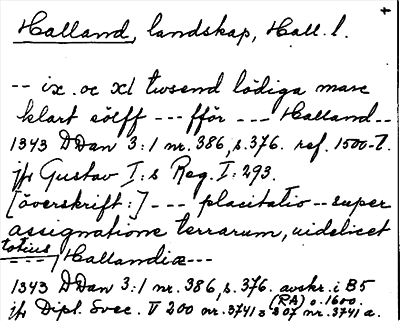 Halland, landskap, Hall. l.
-- ix. oc xl twsend lödiga marc
klart sölff --- fför --- Halland--
1343 DDan 3:1 nr. 386, s. 376. ref. 1500-t.
jfr Gustav I:s Reg. I: 293.
[överskrift:] --- placitatio -- super
assignatione terrarum, uidelicet
totius
---- / Hallandiæ ---
1343 DDan 3:1 nr. 386, s. 376. avskr. i B5
(RA) o. 1600.
jfr Dipl. Svec. V 200 nr. 3741 o 307 nr. 3741 a.